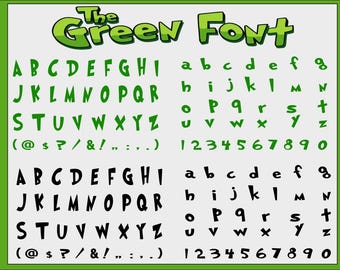 The
Green Font
A B C D E F G H I
J K L M N O P Q R
S T U V W X Y Z
( @ $ ? / & ! . , : ; . . )
a b c d e f g
h i j k l m n
o p q r s t
u v w x y z
1 2 3 4 5 6 7 8 9 0
A B C D E F G H I
J K L M N O P Q R
S T U V W X Y Z
( @ $ ? / & ! . , : ; . . )
a b c d e f g
h i j k l m n
o p q r s t
u v w x y z
1 2 3 4 5 6 7 8 9 0